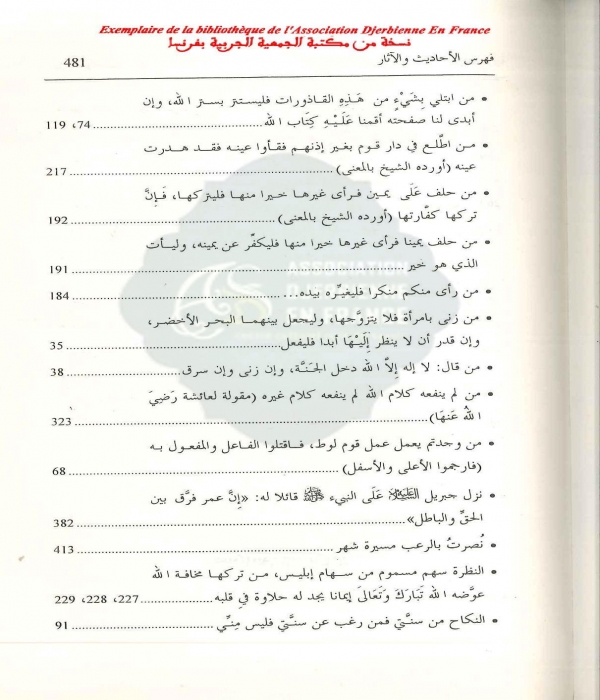 Exemplaire de la bibliothèque de l'Association Djerbienne En France
نسخة من مكتبة الجمعية الجربية بفرنسا
فهرس الأحاديث والآثار 481
• من ابتلي بِشَيْءٍ من هَذِهِ القاذورات فليستتر بستر الله، وإن
أبدى لنا صفحته أقمنا عَلَيْهِ كِتَاب الله ............ 74، 119
• من اطّلع في دار قوم بغير إذنهم فقأوا عينه فقد هدرت
عينه (أورده الشيخ بالمعنى) ............ 217
• من حلف عَلَى يمين فرأى غيرها خيرا منها فليتركها، فَإِنَّ
تركها كفّارتها (أورده الشيخ بالمعنى) ............ 192
• من حلف يمينا فرأى غيرها خيرا منها فليكفّر عن يمينه، وليأت
الذي هو خير ............ 191
• من رأى منكم منكرا فليغيّره بيده... ............ 184
• من زنى بامرأة فلا يتزوّجها، وليجعل بينهما البحر الأخضر،
وإن قدر أن لا ينظر إِلَيْهَا أبدا فليفعل ............ 35
• من قال: لا إله إلاّ الله دخل الجَنَّة، وإن زنى وإن سرق ............ 38
• من لم ينفعه كلام الله لم ينفعه كلام غيره (مقولة لعائشة رَضِيَ
اللهُ عَنهَا) ............ 323
• من وجدتم يعمل عمل قوم لوط، فاقتلوا الفاعل والمفعول به
(فارجموا الأعلى والأسفل) ............ 68
• نزل جبريل عَلَى النبيء ﷺ قائلا له: «إِنَّ عمر فرَّق بين
الحقِّ والباطل» ............ 382
• نُصرتُ بالرعب مسيرة شهر ............ 413
• النظرة سهم مسموم من سهام إبليس، من تركها مخافة الله
عوّضه الله تَبَارَكَ وَتَعَالَى إيمانا يجد له حلاوة فِي قلبه ............ 227، 228، 229
• النكاح من سنتَّي فمن رغب عن سنتَّي فليس مِنِّي ............ 91
ASSOCIATION
DJERBIENNE
EN FRANCE